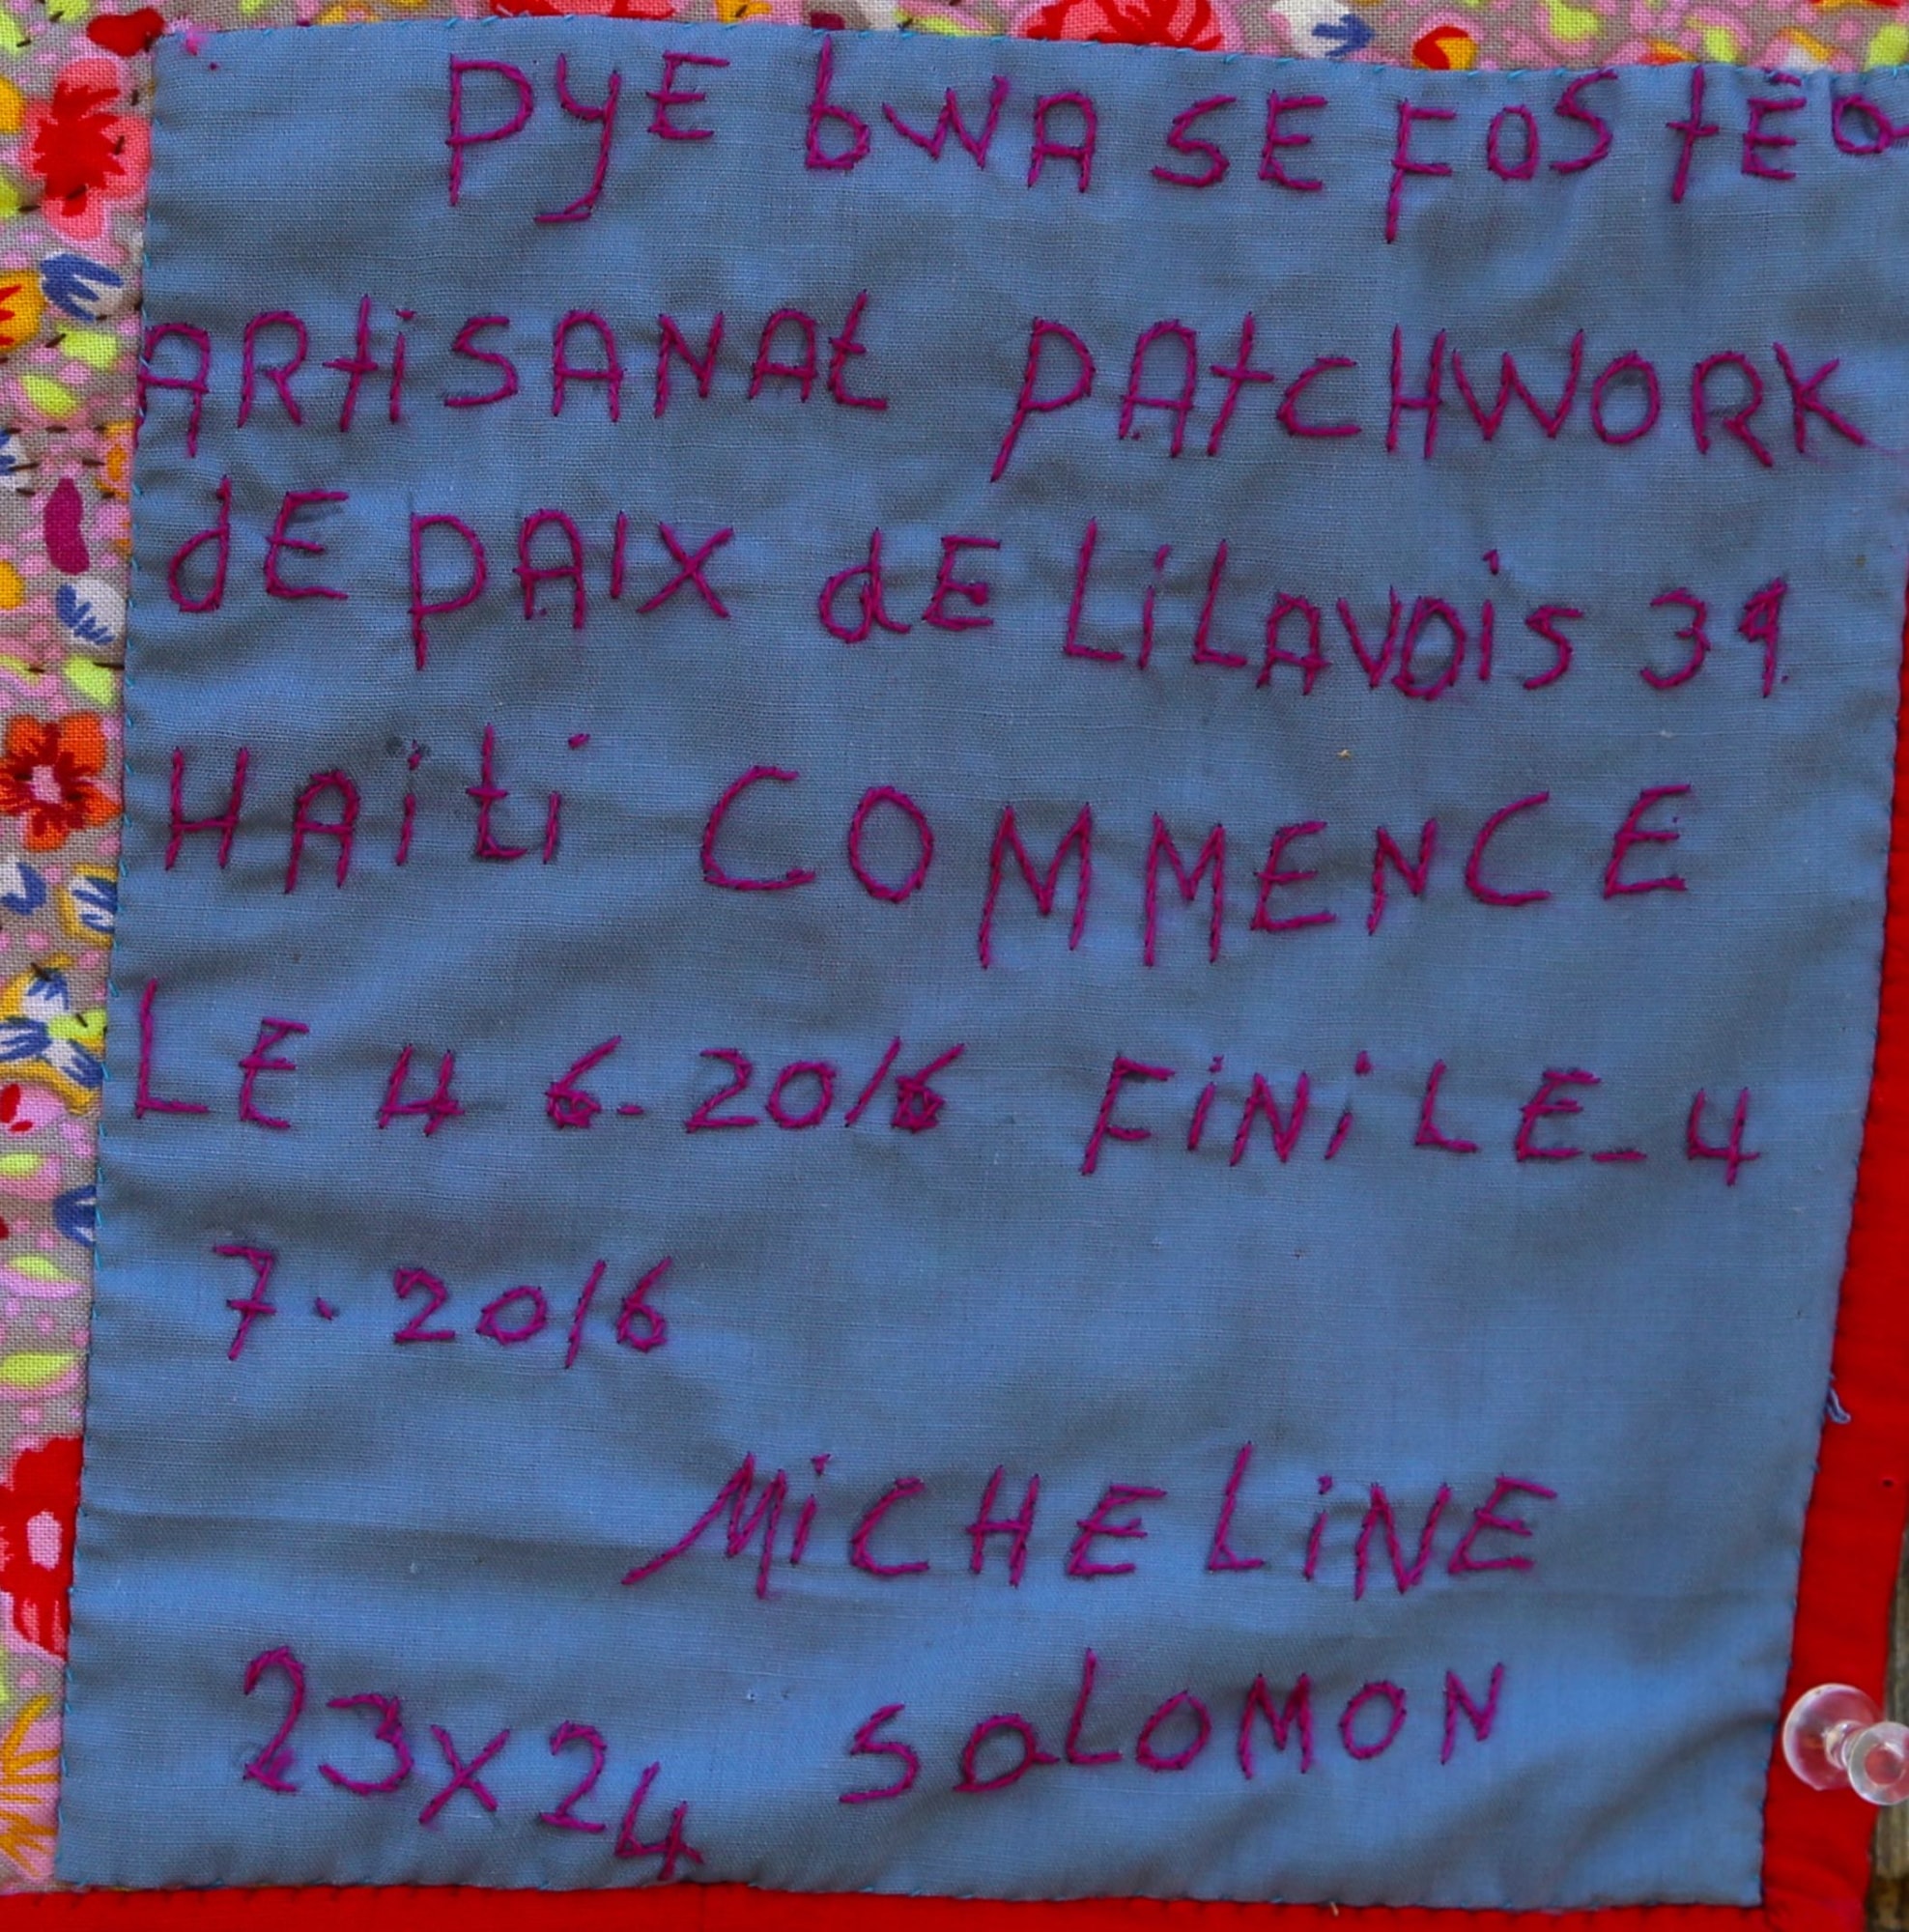 PyE bWA SE FOS tEa
ARtiSANAt PAtCHWORK
dE PAIX dE LiLAVOiS 39
HAiti COMMENCE
LE 4 6-2016 FiNi LE-4
7.2016
MiCHELiNE
23x24 SOLOMON